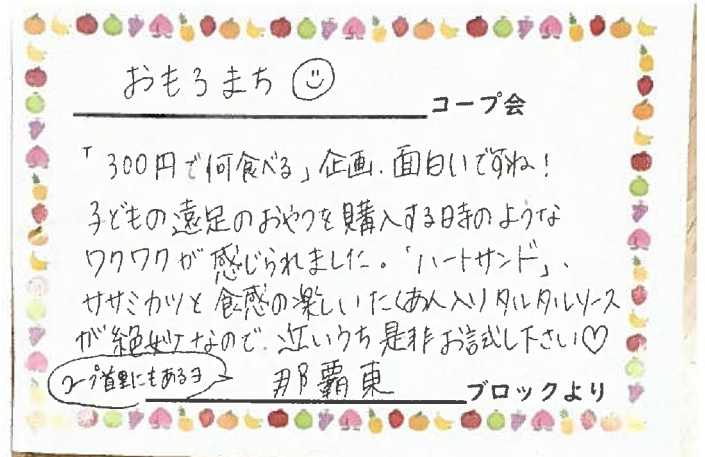 おもろまち
コープ会
「300円で何食べる」企画、面白いですね!
子どもの遠足のおやつを購入する時のような
ワクワクが感じられました。「ハートサンド」、
ササミカツと食感の楽しいたくあん入りタルタルソース
が絶妙なので、近いうち是非お試し下さい♡
コープ首里にもあるヨ
那覇東
ブロックより